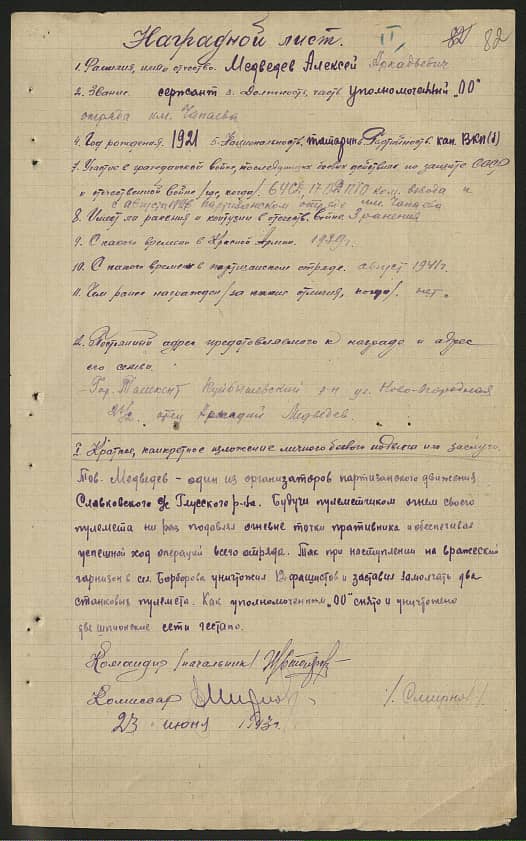 82 82
Наградной лист.
1. Фамилия, имя отчество. Медведев Алексей Аркадьевич
2. Звание. сержант 3. Должность, часть уполномоченный "ОО"
отряда им. Чапаева
4. Год рождения. 1921 5. Национальность. татарин 6. Партийность. кан. ВКП(б)
7. Участие в гражданской войне, последующих боевых действиях по защите СССР
и отечественной войне /где, когда/. ком. взвода и
с августа партизанском отряде им. Чапаева
8. Имеет ли ранения и контузии в отечеств. войне. 3 ранения
9. С какого времени в Красной Армии. 1939г.
10. С какого времени в партизанском отряде. август 1941г.
11. Чем ранее награжден /за какие отличия, когда/. нет.
12. Постоянный адрес представляемого к награде и адрес
его семьи.
Гор. Ташкент Куйбышевский р-н ул. Ново-
отец Аркадий Медведев.
I. Краткое, конкретное изложение личного боевого подвига или заслуг.
Тов. Медведев - один из организаторов партизанского движения
Славковского Глусского р-на. Будучи пулеметчиком огнем своего
пулемета ни раз подавлял огневые точки пративника и обеспечивал
успешной ход операций всего отряда. Так при наступлении на вражеский
гарнизон в с. Борборова уничтожил 12 фашистов и заставил замолчать два
станковых пулемета. Как уполномоченным "ОО" снято и уничтожено
две шпионские сети гестапо.
Командир /начальник/
Комиссар /Смирнов/
23 июня 1943г.